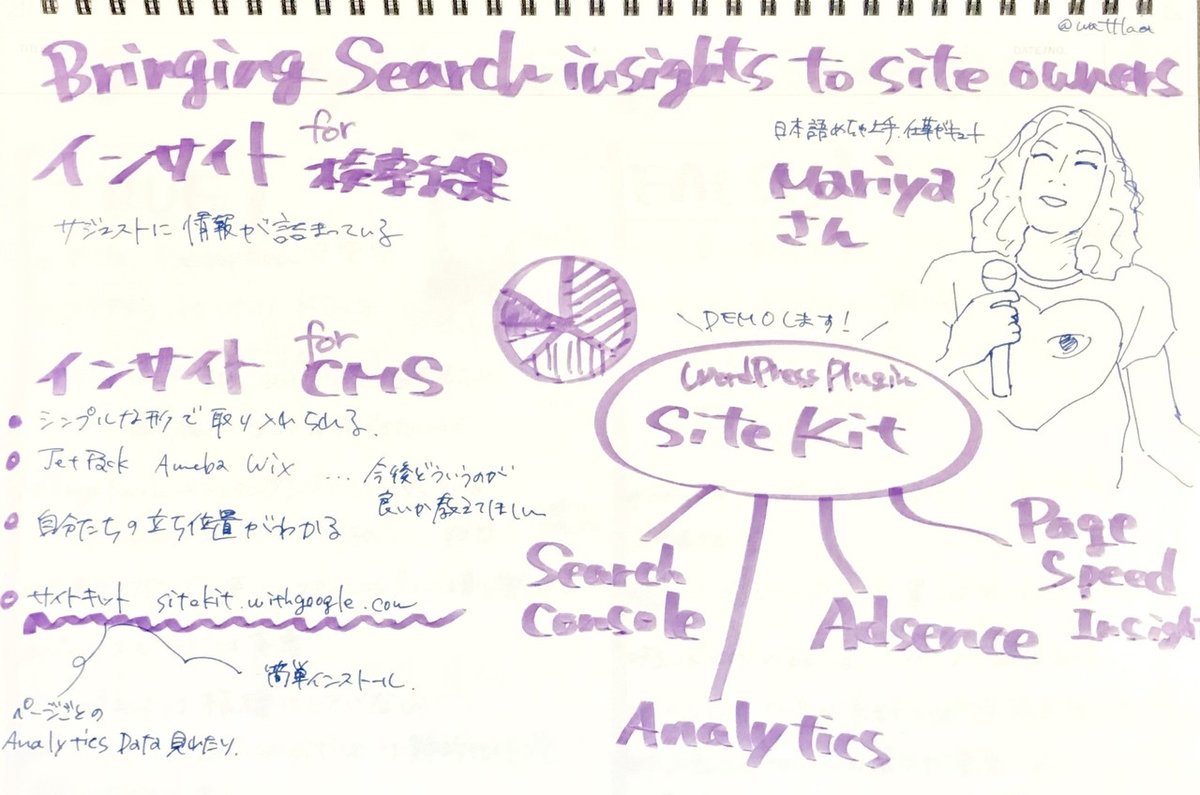 @wattlaa
Bringing Search insights to site owners
インサイト for 検索結果
サジェストに情報が詰まっている
日本語めちゃ上手、仕草がキュート
Mariya
さん
インサイト for CMS
シンプルな形で取り入れられる.
JetPack Ameba Wix ... 今後どういうのが
良いか教えてほしい
自分たちの立ち位置がわかる
サイトキット sitekit.withgoogle.com
簡単インストール.
ページごとの
Analytics Data 見れたり.
\ DEMOします! /
WordPress Plugin
Site Kit
Search
Console
Analytics
Adsence
Page
Speed
Insight